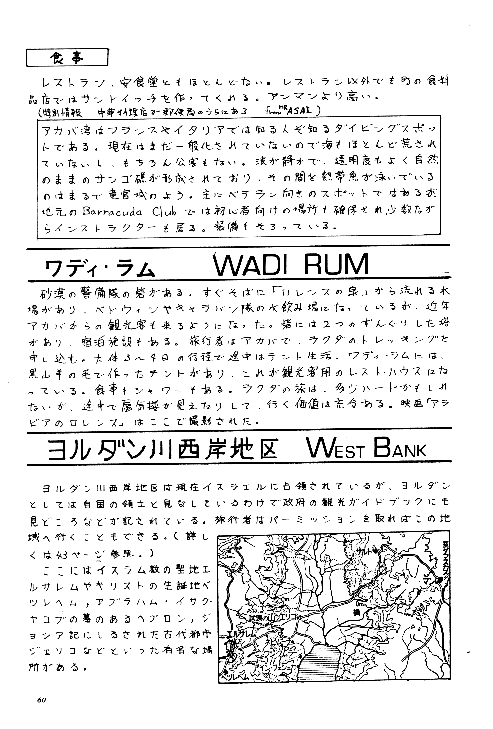 食事
レストラン、安食堂ともほとんどない。レストラン以外でも町の食料
品店ではサンドイッチを作ってくれる。アンマンより高い。
(特別情報 中華料理店が郵便局のうらにある
アカバ湾はフランスやイタリアでは知る人ぞ知るダイビングスポッ
トである。現在はまだ一般化されていないので海もほとんど荒され
ていないし、もちろん公害もない。波が静かで、透明度もよく自然
のままのサンゴ礁が形成されており、その間を熱帯魚が泳いでいる
のはまるで竜宮城のよう。主にベテラン向きのスポットではあるが
地元のBarracuda Clubでは初心者向けの場所も確保され少数なが
らインストラクターも居る。装備もそろっている。
ワディ・ラム WADI RUM
砂漠の警備隊の砦がある。すぐそばに「ロレンスの泉」から流れる水
場があり、ベドウィンやキャラバン隊の水飲み場になっているが、近年
アカバからの観光客も来るようになった。砦には2つのずんぐりした塔
があり、宿泊施設もある。旅行者はアカバで、ラクダのトレッキングを
申し込む。大体3〜4日の行程で途中はテント生活。ワディ・ラムには、
黒山羊の毛で作ったテントがあり、これが観光客用のレストハウスにな
っている。食事もシャワーもある。ラクダの旅は、多少ハードかもしれ
ないが、途中で蜃気楼が見えたりして、行く価値は充分ある。映画「アラ
ビアのロレンス」はここで撮影された。
ヨルダン川西岸地区 WEST BANK
ヨルダン川西岸地区は現在イスラエルに占領されているが、ヨルダン
としては自国の領土と見なしているわけで政府の観光ガイドブックにも
見どころなどが記されている。旅行者はパーミッションを取ればこの地
域へ行くこともできる。(詳し
くは43ページ参照。)
ここにはイスラム教の聖地エ
ルサレムやキリストの生誕地ベ
ツレヘム、アブラハム・イサク・
ヤコブの墓のあるヘブロン、ジ
ョシア記にしるされた古代都市
ジェリコなどといった有名な場
所がある。
60